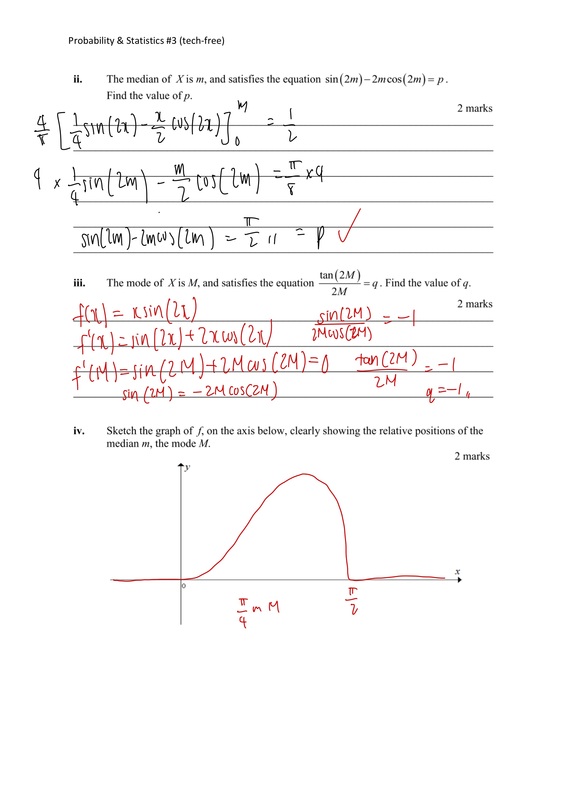 Probability & Statistics #3 (tech-free)
ii. The median of X is m, and satisfies the equation sin(2m)−2m cos(2m) = p.
Find the value of p.
2 marks
4/π [1/4 sin(2x) − x/2 cos(2x)]₀ᴹ = 1/2
4 × 1/4 sin(2m) − m/2 cos(2m) = π/8 ×4
sin(2m)-2mcos(2m) = π/2 ,, = p ✓
iii. The mode of X is M, and satisfies the equation tan(2M)/2M = q. Find the value of q.
2 marks
f(x) = x sin(2x)
sin(2M)/2Mcos(2M) = −1
f'(x) = sin(2x) + 2x cos(2x)
f'(M) = sin(2M) + 2M cos(2M) = 0
tan(2M)/2M = −1
sin(2M) = −2M cos(2M)
q = −1,,
iv. Sketch the graph of f, on the axis below, clearly showing the relative positions of the
median m, the mode M.
2 marks
y
x
0
π/4 m M
π/2